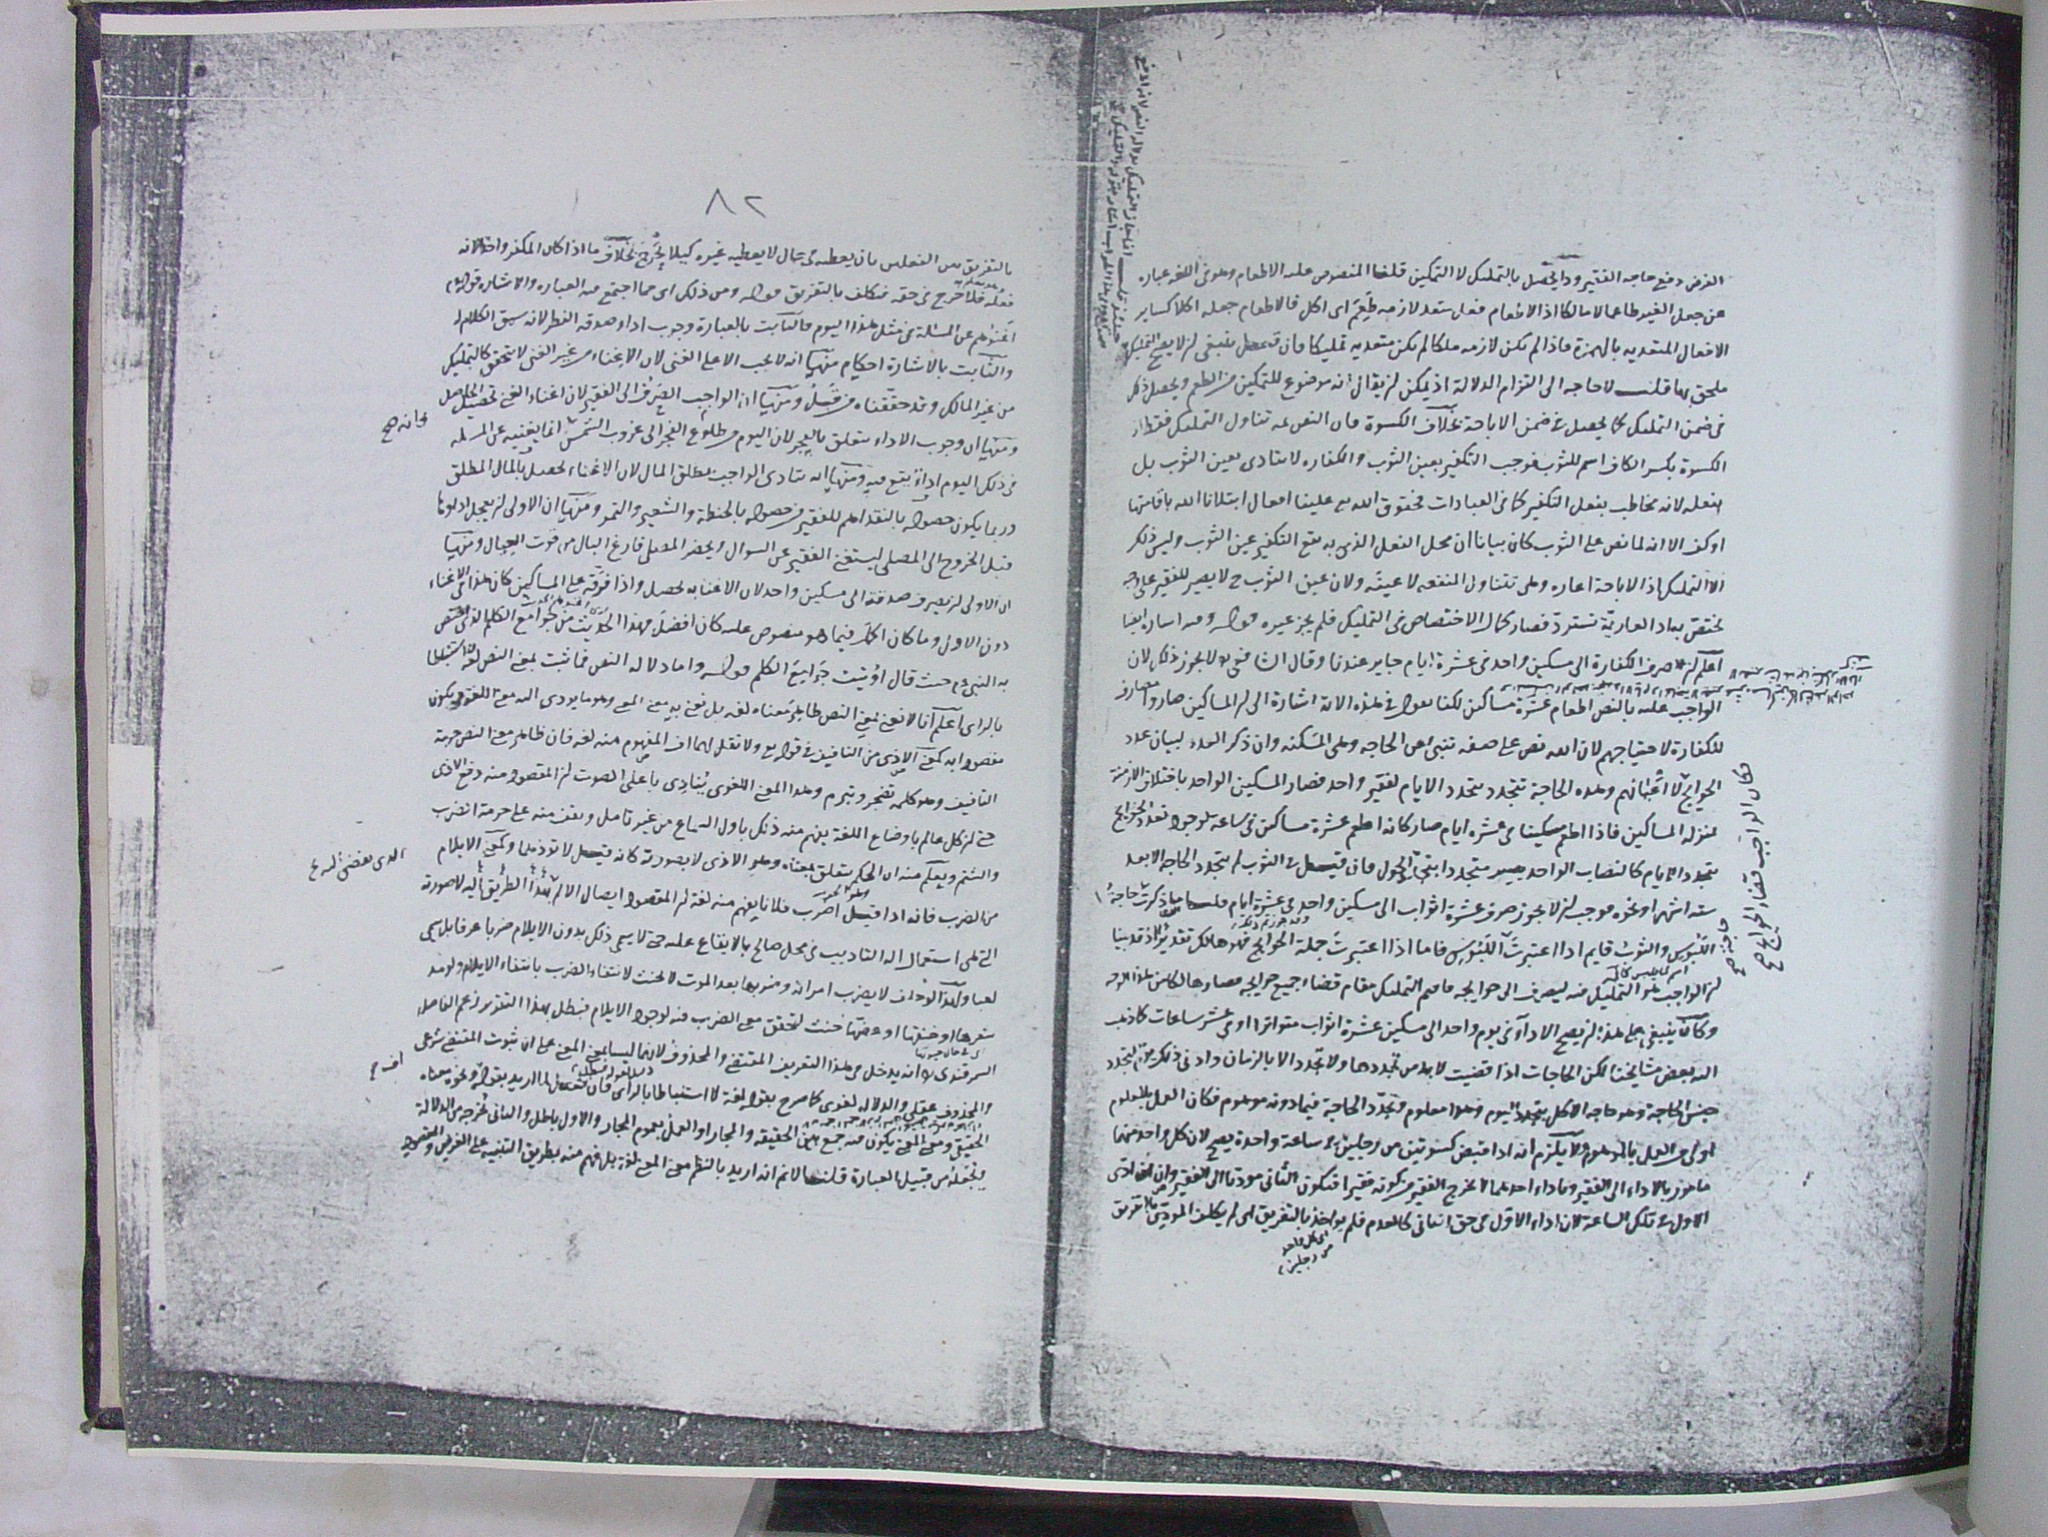 الغرض دفع حاجه الفقير وذا يحصل بالتمليك لا التمكين قلنا المنصوص عليه الاطعام وهو في اللغه عباره
عن جعل الغير طاعما لا مالكا اذ الاطعام فعل متعد لازمه طَعِمَ اى اكل فالاطعام جعله اكلا كساير
الافعال المتعديه بالهمزة فاذا لم يكن لازمه ملكا لم يكن متعديه تمليكا فان قيل ينبغى ان لا يصح التمليك
ملحق بها قلت لا حاجه الى التزام الدلالة اذ يمكن ان يقال انه موضوع للتمكين من الطعم ويحصل ذلك
فى ضمن التمليك كما يحصل فى ضمن الاباحة بخلاف الكسوة فان النص ثمه تناول التمليك فقط اذ
الكسوة بكسر الكاف اسم للثوب فوجب التكفير بعين الثوب والكفاره لا يتادى بعين الثوب بل
بفعله لانه مخاطب بفعل التكفير كما فى العبادات فحقوق الله تع علينا افعال ابتلانا الله باقامتها
او كف الا انه لما نص على الثوب كان بيانا ان محل الفعل الذى به يقع التكفير عين الثوب وليس ذلك
الا التمليك اذ الاباحة اعاره وهى تتناول المنفعه لا عينه ولان عين الثوب ح لا يصير للفقير على وجه
يختص به اذ العارية تسترد فصار كمال الاختصاص فى التمليك فلم يجز غيره قوله وفيه اشاره ايضا
اعلم ان صرف الكفارة الى مسكين واحد فى عشرة ايام جايز عندنا وقال الشافعى لا يجوز ذلك لان
الواجب عليه بالنص اطعام عشرة مساكين لكنا نقول فى هذه الاية اشارة الى ان المساكين صاروا مصارف
للكفارة لاحتياجهم لان الله نص على صفه تنبئ عن الحاجه وهى المسكنه وان ذكر العدد لبيان عدد
الحوايج لا اعيانهم وهذه الحاجة تتجدد بتجدد الايام لفقير واحد فصار المسكين الواحد باختلاف الازمنة
بمنزلة المساكين فاذا اطعم مسكينا فى عشرة ايام صار كانه اطعم عشرة مساكين فى ساعه لوجود تعدد الحوايج
بتجدد الايام كالنصاب الواحد يصير متجددا بتجدد الحول فان قيل فى الثوب لم يتجدد الحاجه الا بعد
سته اشهر او نحوه فوجب ان لا يجوز صرف عشرة اثواب الى مسكين واحد فى عشرة ايام قلنا ما ذكرت حاجة
اللَّبُوس والثوب قايم اذا اعتبرت اللَّبُوس فاما اذا اعتبرت جملة الحوايج فهو هالك تقديرا اذ قد بينا
ان الواجب هو التمليك فيه ليصرف الى حوايجه فاقيم التمليك مقام قضاء جميع حوايجه فصار هالكا من هذا الوجه
وكان ينبغى على هذا ان يصح الاداء فى يوم واحد الى مسكين عشرة اثواب متواترا او فى عشر ساعات كما ذهب
اليه بعض مشايخنا لكن الحاجات اذا قضيت لا بد من تجددها ولا تجدد الا بالزمان وادنى ذلك يوم لتجدد
جنس الحاجة وهو حاجه الاكل بتجدد اليوم وهذا معلوم وتجدد الحاجة فيما دونه موهوم فكان العمل بالمعلوم
اولى من العمل بالموهوم ولا يلزم انه اذا قبض كسوتين من رجلين فى ساعة واحدة يصح لان كل واحد منهما
مامور بالاداء الى الفقير وباداء احدهما لا يخرج الفقير من كونه فقيرا فيكون الثانى موديا الى الفقير وان ادى
الاول فى تلك الساعة لان اداء الاول فى حق الثانى كالعدم فلم يواخذ بالتفريق اى لم يكلف المودى بالتفريق
اى كل واحد
من رجلين
فكان الواجب قضاء الحوايج صح
حاجة صح
٨٢
بالتفريق بين الفعلين بان يعطيه فى حال لا يعطيه غيره كيلا يُحْرَج بخلاف ما اذا كان المكفر واحدا لانه
فعله فلا حرج فى حقه فيكلف بالتفريق قوله ومن ذلك اى مما اجتمع فيه العباره والاشاره قوله عم
اغنوهم عن المسئلة فى مثل هذا اليوم فالثابت بالعبارة وجوب اداء صدقه الفطر لانه سيق الكلام له
والثابت بالاشارة احكام منها انه لا يجب الا على الغنى لان الاغناء من غير الغنى لا يتحقق كالتمليك
من غير المالك وقد حققناه من قبل ومنها ان الواجب الصرف الى الفقير لان اغناء الغنى تحصيل الحاصل
ومنها ان وجوب الاداء يتعلق بالفجر لان اليوم من طلوع الفجر الى غروب الشمس انما يغنيه عن المسئله
وانه صح
فى ذلك اليوم اداء يقع فيه ومنها انه يتادى الواجب بمطلق المال لان الاغناء يحصل بالمال المطلق
وربما يكون حصوله بالنقد اتم للفقير من حصوله بالحنطة والشعير والتمر ومنها ان الاولى ان يعجل اداءها
قبل الخروج الى المصلى ليستغنى الفقير عن السوال ويحضر المصلى فارغ البال من قوت العيال ومنها
ان الاولى ان يصرف صدقة الى مسكين واحد لان الاغناء به يحصل واذا فرقه على المساكين كان هذا فى الاغناء
دون الاول وما كان اكمل فيما هو منصوص عليه كان افضل فهذا الحديث من جوامع الكلم الذى اختص
به النبى عم حيث قال اوتيت جوامع الكلم قوله واما دلاله النص فما ثبت بمعنى النص لغة لا استنباطا
بالراى اعلم انا لا نعنى بمعنى النص ظاهر معناه لغه بل نعنى به معنى المعنى وهو ما يودى اليه معنى اللغه ويكون
مقصودا به كمعنى الاذى من التافيف فى قوله تع ولا تقل لهما اف المفهوم منه لغه فان ظاهر معنى النص حرمة
التافيف وهو كلمه تضجر وتبرم وهذا المعنى اللغوى يُنَادِى باعلى الصوت ان المقصود منه دفع الاذى
حتى ان كل عالم باوضاع اللغة يفهم منه ذلك باول السماع من غير تامل ويقف منه على حرمة الضرب
والشتم ويعلم منه ان الحكم يتعلق بمعناه وهو الاذى لا بصورته كانه قيل لا توذهما وكمعنى الايلام
من الضرب فانه اذا قيل اضرب فلانا يفهم منه لغة ان المقصود ايصال الالم بهذا الطريق اليه لا صورته
التى هى استعمال اله التاديب فى محل صالح بالايقاع عليه حتى لا يسمى ذلك بدون الايلام ضربا عرفا بل يسمى
لعبا ولهذا لو حلف لا يضرب امراته وضربها بعد الموت لا يحنث لانتفاء الضرب بانتفاء الايلام ولو مد
شعرها او خنقها او عضها حنث لتحقق معنى الضرب فيه لوجود الايلام فبطل بهذا التقرير زعم الفاضل
السمرقندى انه يدخل فى هذا التعريف المقتضى والمحذوف لانهما ليسا بمعنى المعنى على ان ثبوت المقتضى شرعى
والمحذوف عقلى والدلالة لغوى كما صرح بقوله لغة لا استنباطا بالراى فان قيل لما اريد بقوله ونحوه معناه
الحقيقى ومعنى المعنى يكون فيه جمع بين الحقيقه والمجاز او العمل بعموم المجاز والاول باطل والثانى يُخرجه من الدلالة
ويجعله من قبيل العبارة قلنا لا نم انه اريد بالنظم معنى المعنى لغة بل فهم منه بطريق التنبيه على الغرض والمقصود